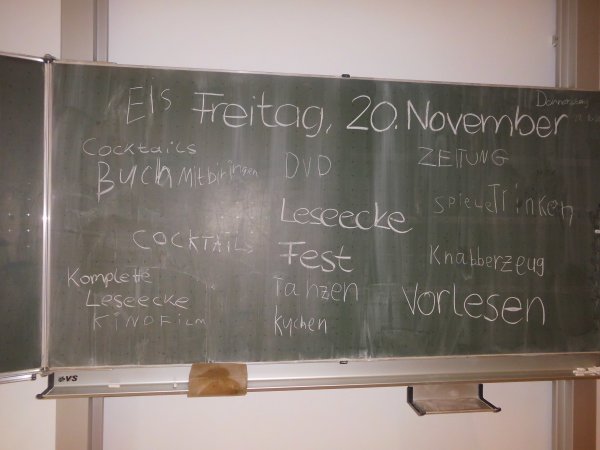 Eis Freitag, 20. November
Donnerstag
Cocktails
Buch Mitbiringen
DVD
ZEITUNG
Leseecke
SPIELE Trinken
COCKTAILS
Fest
Knabberzeug
Komplette
Leseecke
KINOFILM
Tanzen
Kuchen
Vorlesen
VS